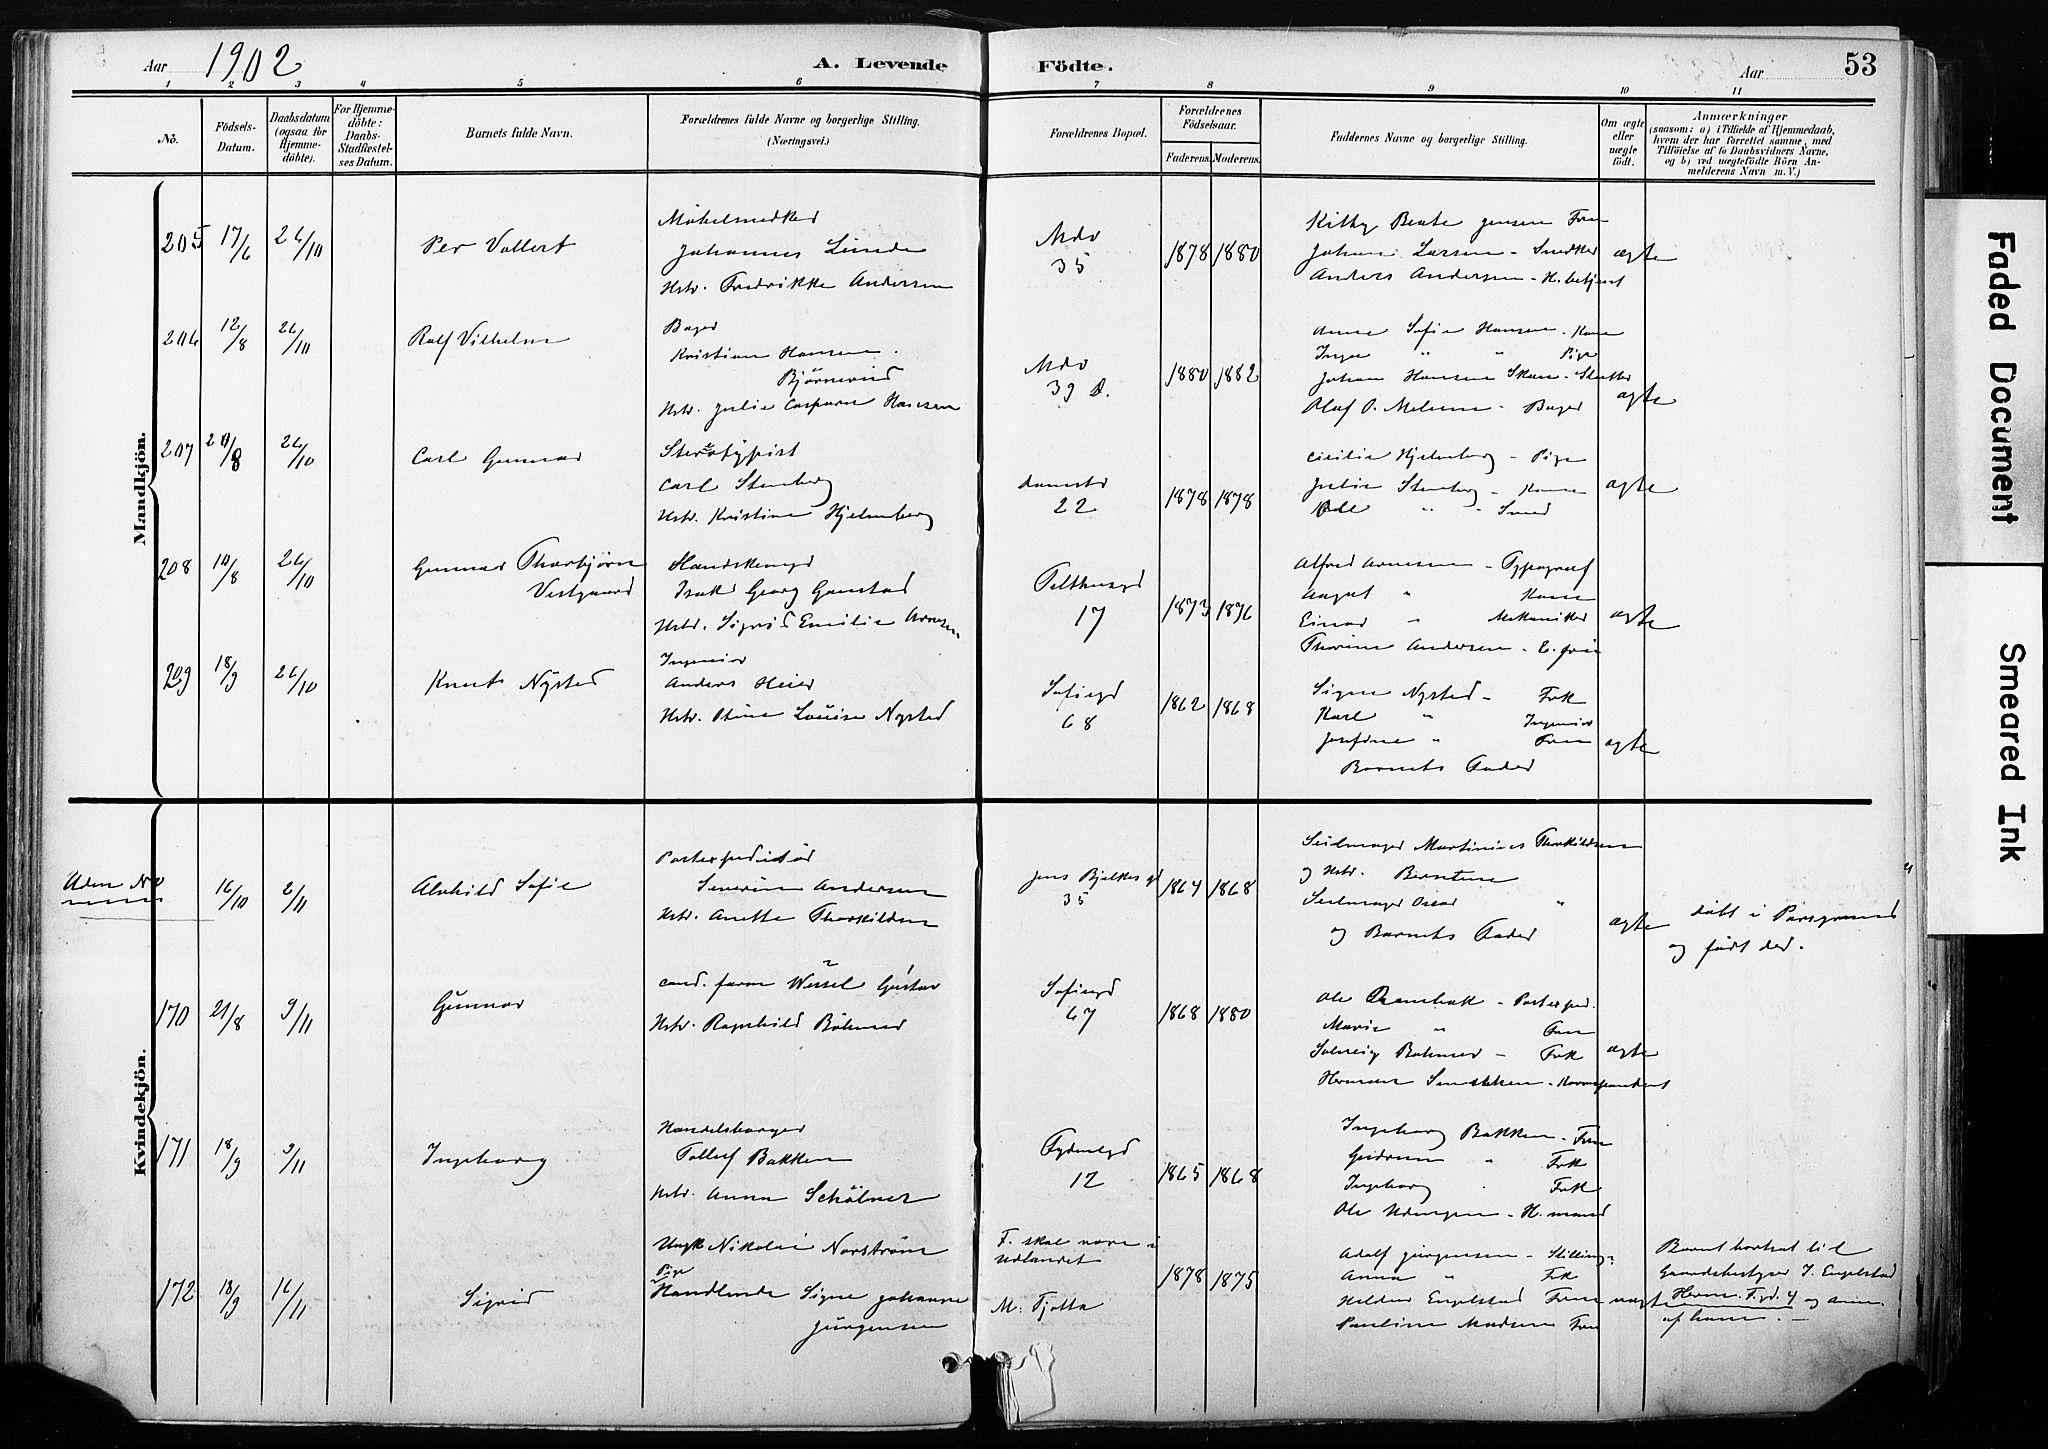 Aar 1902
A. Levende
Födte.
Aar
53
1 2 3 4 5 6 7 8 9 10 11
No.
Födsels-Datum.
Daabsdatum (ogsaa for Hjemme-döbte).
For Hjemme-döbte: Daabs-Stadfæstel-ses Datum.
Barnets fulde Navn.
Forældrenes fulde Navne og borgerlige Stilling. (Næringsvei.)
Forældrenes Bopæl.
Forældrenes Födselsaar.
Faderens. Moderens.
Faddernes Navne og borgerlige Stilling.
Om ægte eller uægte födt.
Anmærkninger
(saasom: a) i Tilfælde af Hjemmedaab,
hvem der har forrettet samme, med
Tilföielse af to Daabsvidners Navne,
og b) ved uægtefödte Börn An-
melderens Navn m. V.)
Mandkjön.
205 17/6 26/10 Per Vollert
Møbelsnedker
Johannes Lunde
Hstr. Fredrikke Andersen
Mdv 35
1878 1880
Kitty Beate Jensen Frue
Johan Larsen - Snedker
Anders Andersen - H.betjent
ægte
206 12/8 26/10 Rolf Vilhelm
Bager
Kristian Hansen
Bjørnerud
Hstr. Julie Caspara Hansen
Mdv 39 d.
1880 1882
Anne Sofie Hansen - Kone
Inga " " Pige
Johan Hansen Skau -
Olaf O. Melum - Bager
ægte
207 20/8 26/10 Carl Gunnar
Sterotypist
Carl Stenberg
Hstr. Kristine Hjelmberg
22
1878 1878
Cicilie Hjelmberg - Pige
Julie Stenberg - Kone
" - Smed
ægte
208 10/8 26/10 Gunnar Thorbjørn
Vestgaard
Handskemgd
Isak Georg Gaustad
Hstr. Sigrid Emilie Arnesen
Telthusgd 17
1873 1876
Alfred Arnesen - Typograf
August " Kone
Einar " Mekaniker
Thorine Andersen - E. frue
ægte
209 18/9 26/10 Knut Nysted
Ingeniør
Anders Heier
Hstr. Stine Louise Nysted
Sofiegd 68
1862 1868
Signe Nysted - Frk
Karl " Ingeniør
Josefine " Frue
Barnets Fader
ægte
Kvindekjön.
Uden No
16/10 2/11 Alvhild Sofie
Postexpeditør
Severin Andersen
Hstr. Anette Thorkildsen
Jens Bjelkes gd 35
1864 1868
Seilmager Martinius Thorkildsen
og Hstr. Berntine
Seilmager Oscar "
og Barnets Fader
ægte
døbt i Porsgrund
og født der.
170 21/8 9/11 Gunnar
cand. farm Wessel Gustav
Hstr. Ragnhild Böhmer
Sofiegd 67
1868 1880
Ole - Postexped.
Marie " Frue
Solveig Bøhmer - Frk
Herman - Korrespondent
ægte
171 18/9 9/11 Ingeborg
Handelsborger
Tollef Bakken
Hstr. Anna Schölner
Fydenlgd 12
1865 1868
Ingeborg Bakken - Frue
Gudrun " Frk
Ingeborg " Frk
Ole - H.mand
172 18/9 16/11 Sigrid
Ungk Nikolai Norström
Pige
Handlende Signe Johanne
Jürgensen
F. skal være i
Udlandet
M: Tjøtta
1878 1875
Adolf Jürgensen - Stilling:
Anna " Frk
Heldur Engelstad Frue
Pauline Madsen Frue
uægte
Barnet bortsat til
Gaardsbestyrer I. Engelstad
Herm. F.gd. 4 og anm.
af ham. -
Faded Document
Smeared Ink